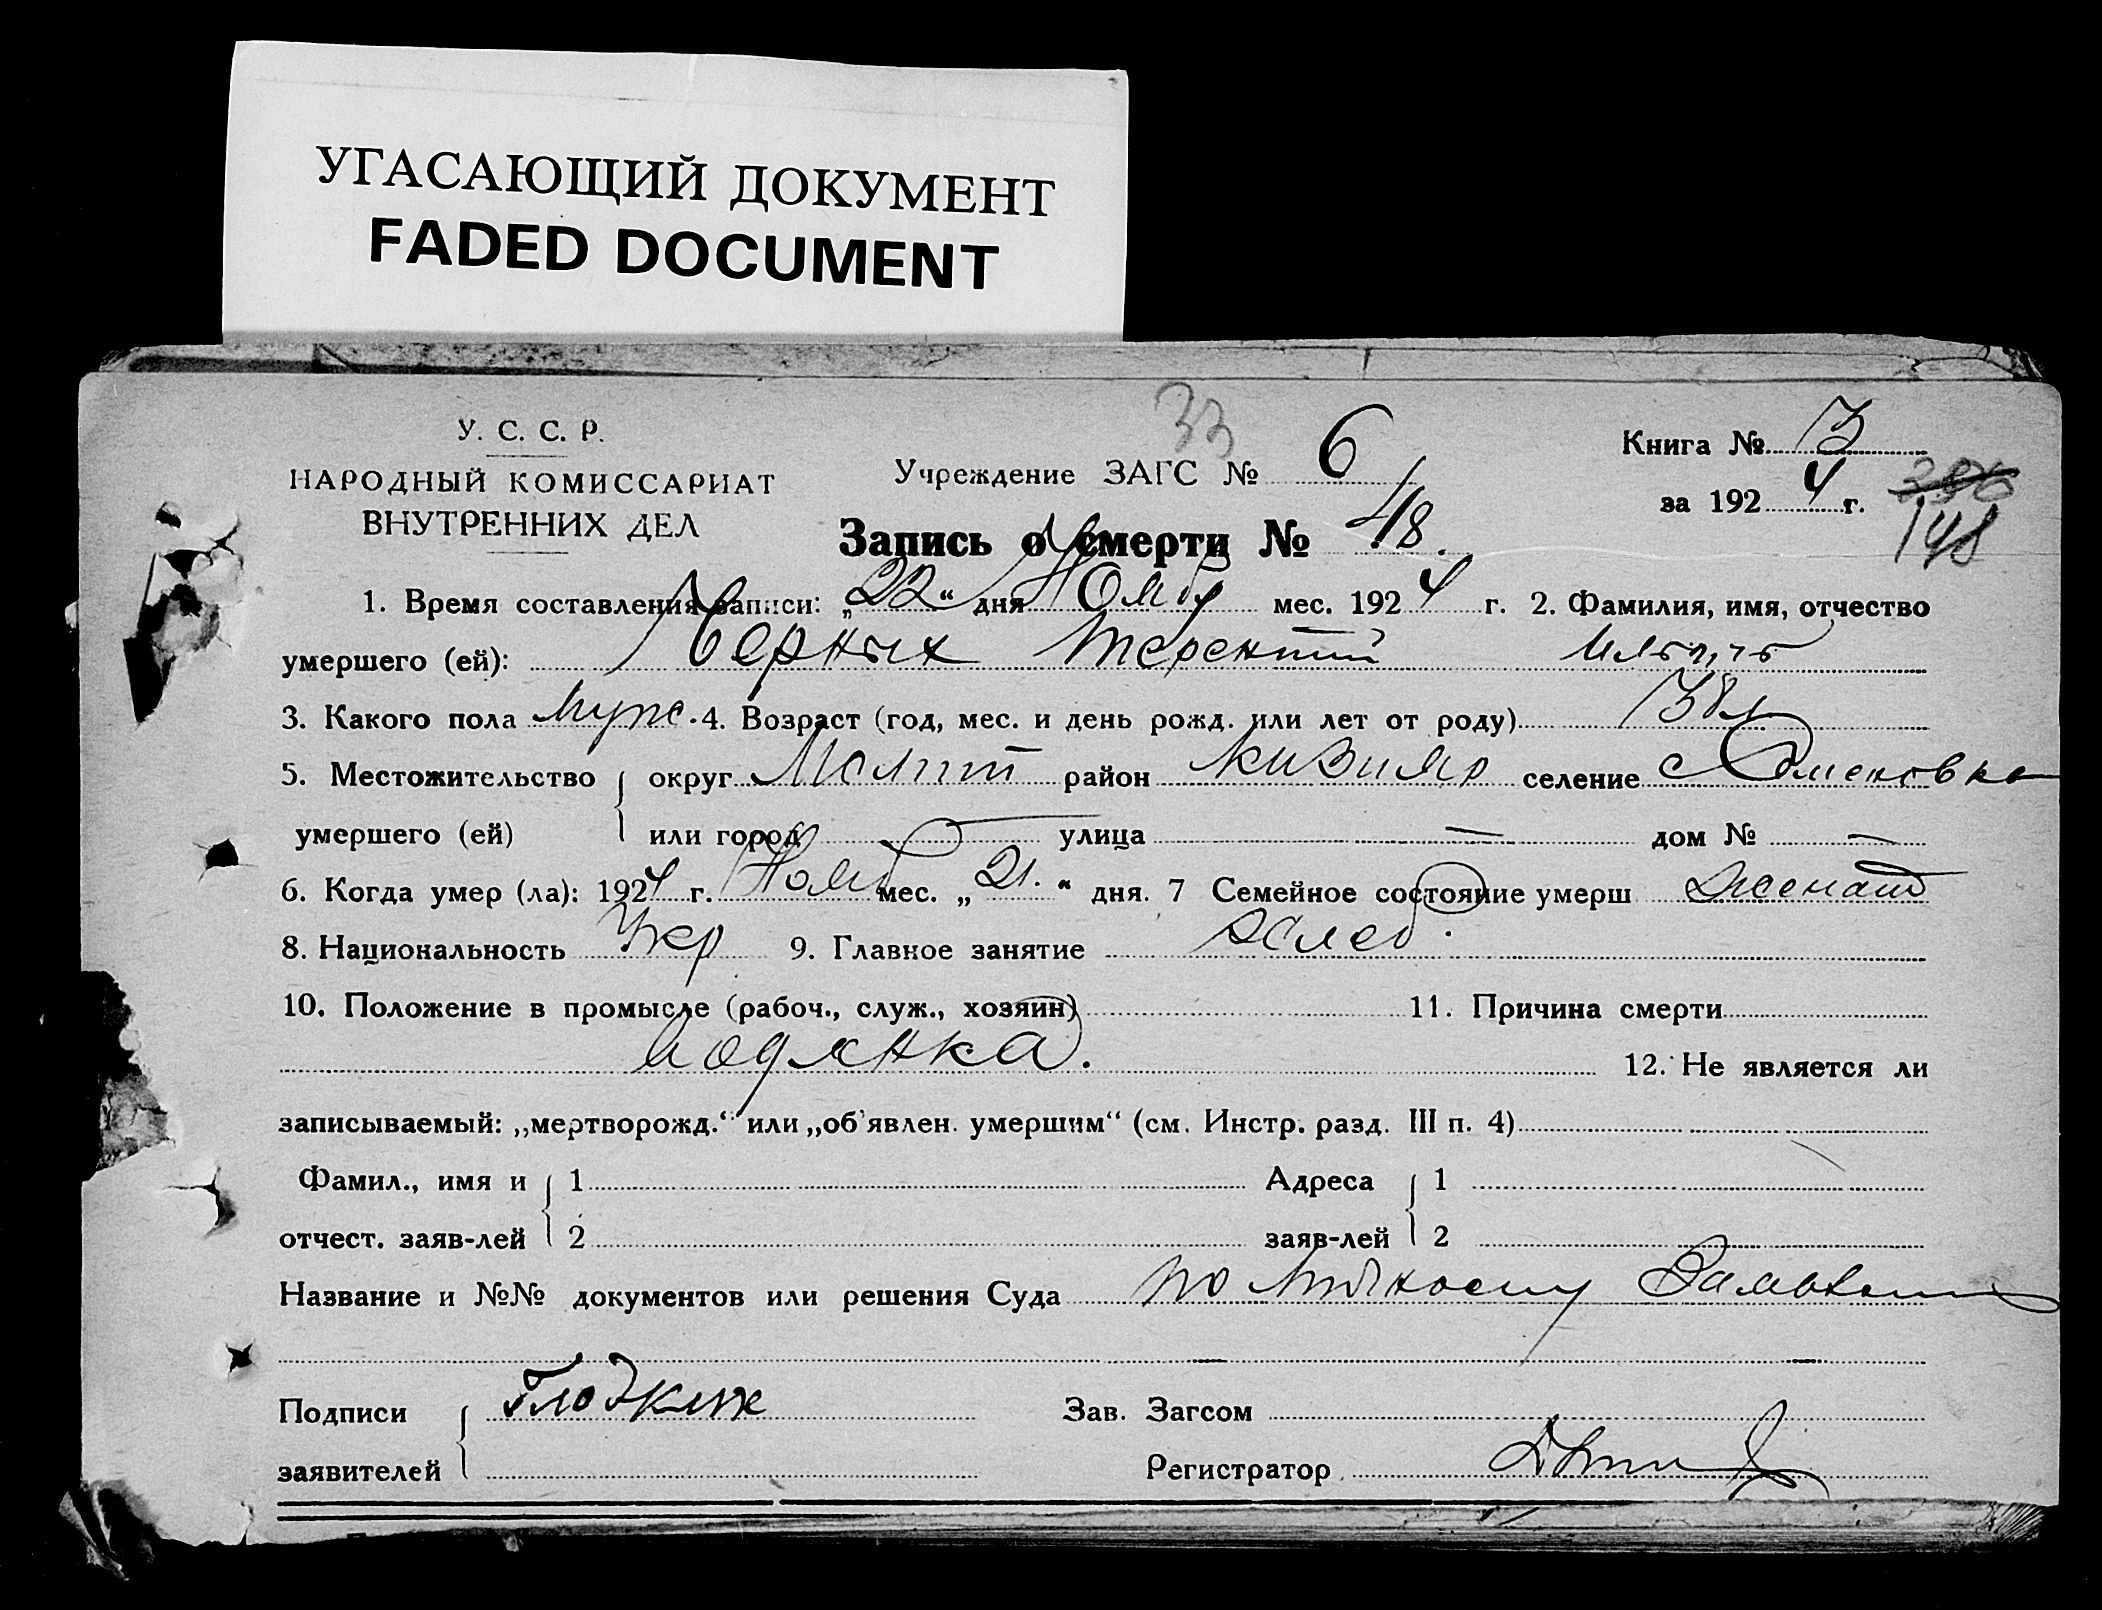 УГАСАЮЩИЙ ДОКУМЕНТ
FADED DOCUMENT
У. С. С. Р.
НАРОДНЫЙ КОМИССАРИАТ
ВНУТРЕННИХ ДЕЛ
33
Учреждение ЗАГС № 6
Книга № 3
за 1924 г.
148
Запись о смерти № 48.
1. Время составления записи: „22“ дня Ноябр мес. 1924 г. 2. Фамилия, имя, отчество
умершего (ей): Черных Терентий Ильич
3. Какого пола муж. 4. Возраст (год, мес. и день рожд. или лет от роду) 38 л
5. Местожительство округ Мелит район Кизияр селение
умершего (ей) или город — улица — дом № —
6. Когда умер (ла): 1924 г. Нояб мес. „21.“ дня. 7 Семейное состояние умерш женат
8. Национальность Укр 9. Главное занятие хлеб.
10. Положение в промысле (рабоч., служ., хозяин) 11. Причина смерти
водянка.
12. Не является ли
записываемый: „мертворожд.“ или „об'явлен. умершим“ (см. Инстр. разд. III п. 4)
Фамил., имя и 1 Адреса 1
отчест. заяв-лей 2 заяв-лей 2
Название и №№ документов или решения Суда по
Подписи Зав. Загсом
заявителей Регистратор